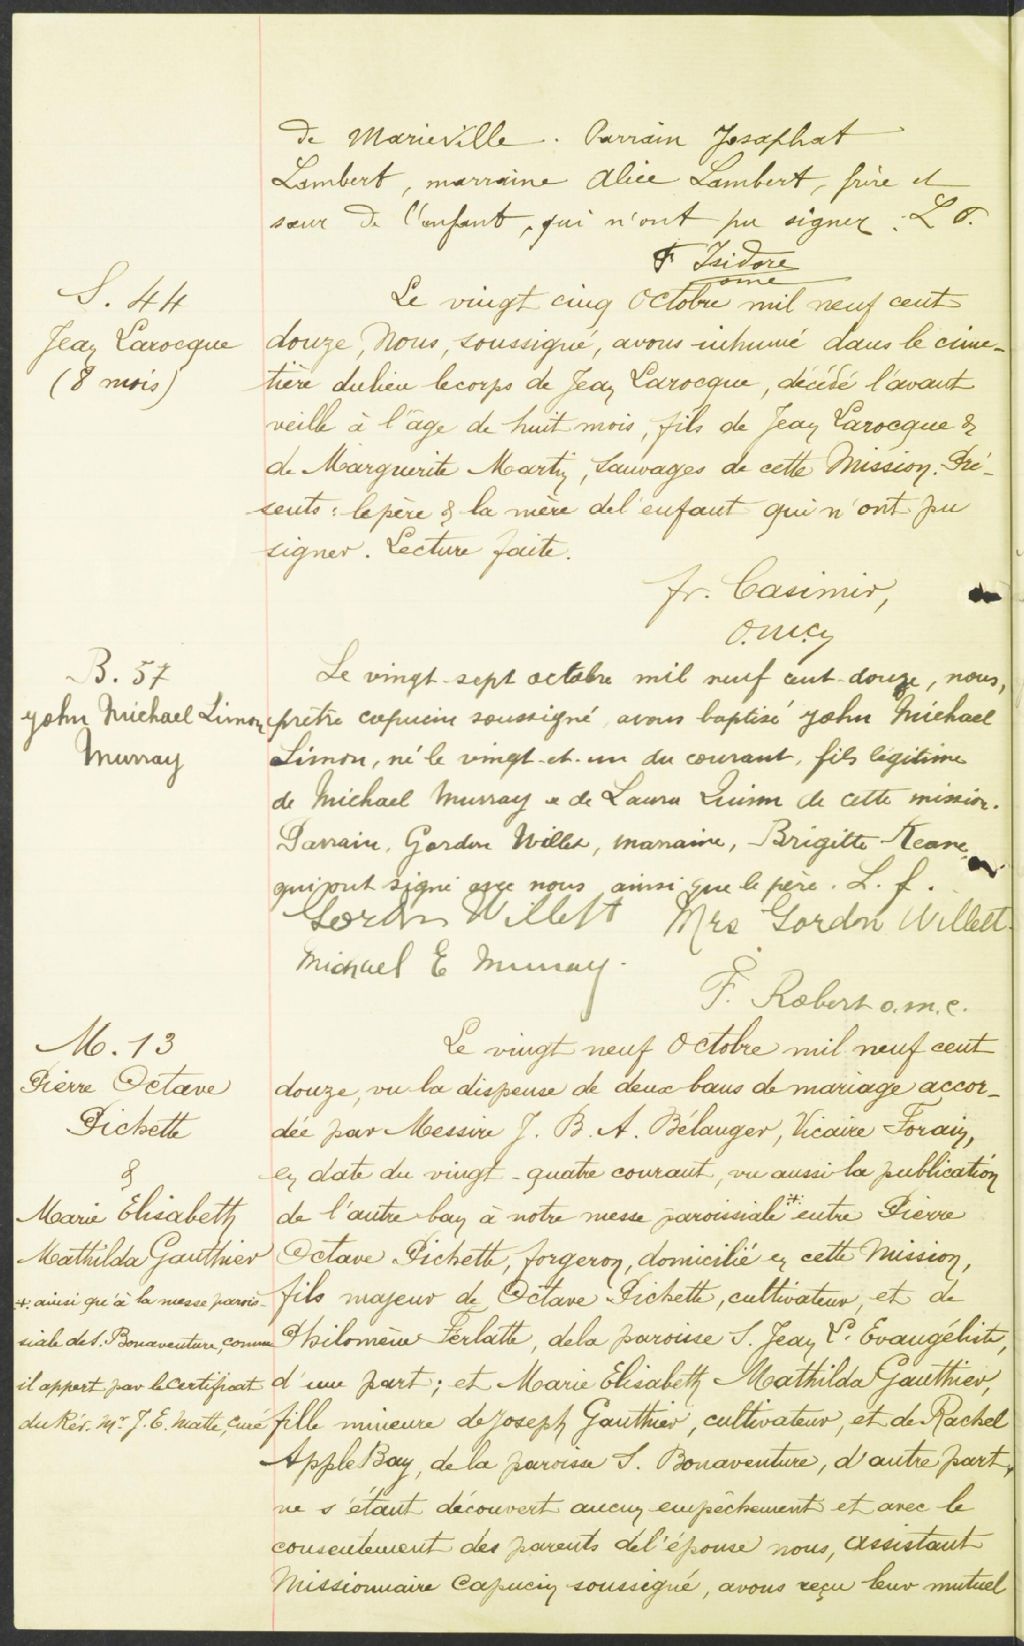 de Marieville. Parrain Josaphat
Lambert, marraine Alice Lambert, frère et
sœur de l'enfant, qui n'ont pu signer. L F.
F Isidore
omc
S. 44
Jean Larocque
(8 mois)
Le vingt cinq Octobre mil neuf cent
douze, Nous, soussigné, avons inhumé dans le cime-
tière du lieu le corps de Jean Larocque, décédé l'avant
veille à l'âge de huit mois, fils de Jean Larocque &
de Marguerite Martin, Sauvages de cette Mission. Pré-
sents: le père & la mère de l'enfant qui n'ont pu
signer. Lecture faite.
fr. Casimir,
B. 57
John Michael Limon
Murray
Le vingt-sept octobre mil neuf cent-douze, nous,
prêtre capucin soussigné avons baptisé John Michael
Limon, né le vingt-et-un du courant, fils légitime
de Michael Murray & de Laura Quinn de cette mission.
Parrain, Gordon Willet, marraine, Brigitte Keane
qui ont signé avec nous ainsi que le père. L. f.
Gordon Willett Mrs Gordon Willett.
Michael E Murray.
F. Robert o.m.c.
M. 13
Pierre Octave
Pichette
&
Marie Elisabeth
Mathilda Gauthier
+ ainsi qu'à la messe parois-
siale de S. Bonaventure, comme
il appert par le certificat
du Rév. Mr J. E. Matte, curé
Le vingt neuf Octobre mil neuf cent
douze, vu la dispense de deux bans de mariage accor-
dée par Messire J. B. A. Bélanger, Vicaire Forain,
en date du vingt-quatre courant, vu aussi la publication
de l'autre ban à notre messe paroissiale + entre Pierre
Octave Pichette, forgeron, domicilié en cette Mission,
fils majeur de Octave Pichette, cultivateur, et de
Philomène Ferlatte, de la paroisse S. Jean L'Evangéliste,
d'une part; et Marie Elisabeth Mathilda Gauthier,
fille mineure de Joseph Gauthier, cultivateur, et de Rachel
AppleBay, de la paroisse S. Bonaventure, d'autre part,
ne s'étant découvert aucun empêchement et avec le
consentement des parents de l'épouse nous, assistant
Missionnaire Capucin soussigné, avons reçu leur mutuel